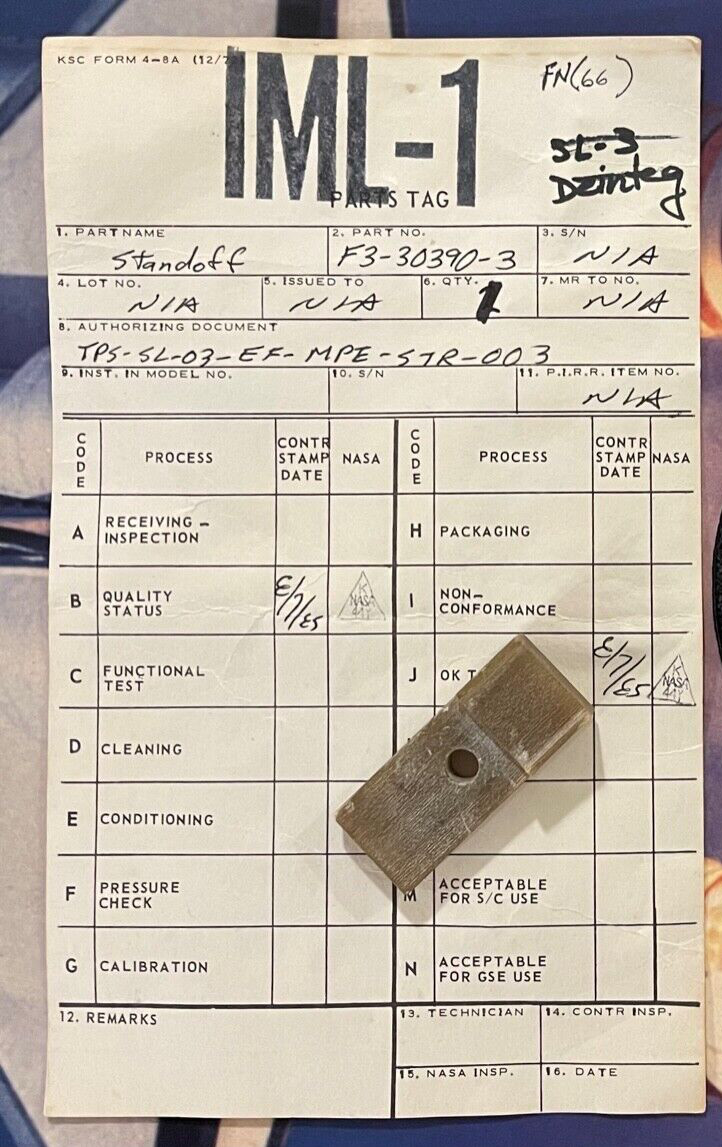 KSC FORM 4-8A (12/7
IML-1
FN(66)
SL-3
Dzinteg
PARTS TAG
1. PART NAME
Standoff
2. PART NO.
F3-30390-3
3. S/N
N/A
4. LOT NO.
N/A
5. ISSUED TO
N/A
6. QTY.
1
7. MR TO NO.
N/A
8. AUTHORIZING DOCUMENT
TPS-SL-03-EF-MPE-STR-003
9. INST. IN MODEL NO.
10. S/N
11. P.I.R.R. ITEM NO.
N/A
CODE
PROCESS
CONTR STAMP DATE
NASA
CODE
PROCESS
CONTR STAMP DATE
NASA
A
RECEIVING -
INSPECTION
H
PACKAGING
B
QUALITY
STATUS
K
NASA
I
NON-
CONFORMANCE
C
FUNCTIONAL
TEST
J
OK T
K
NASA
D
CLEANING
E
CONDITIONING
F
PRESSURE
CHECK
M
ACCEPTABLE
FOR S/C USE
G
CALIBRATION
N
ACCEPTABLE
FOR GSE USE
12. REMARKS
13. TECHNICIAN
14. CONTR INSP.
15. NASA INSP.
16. DATE